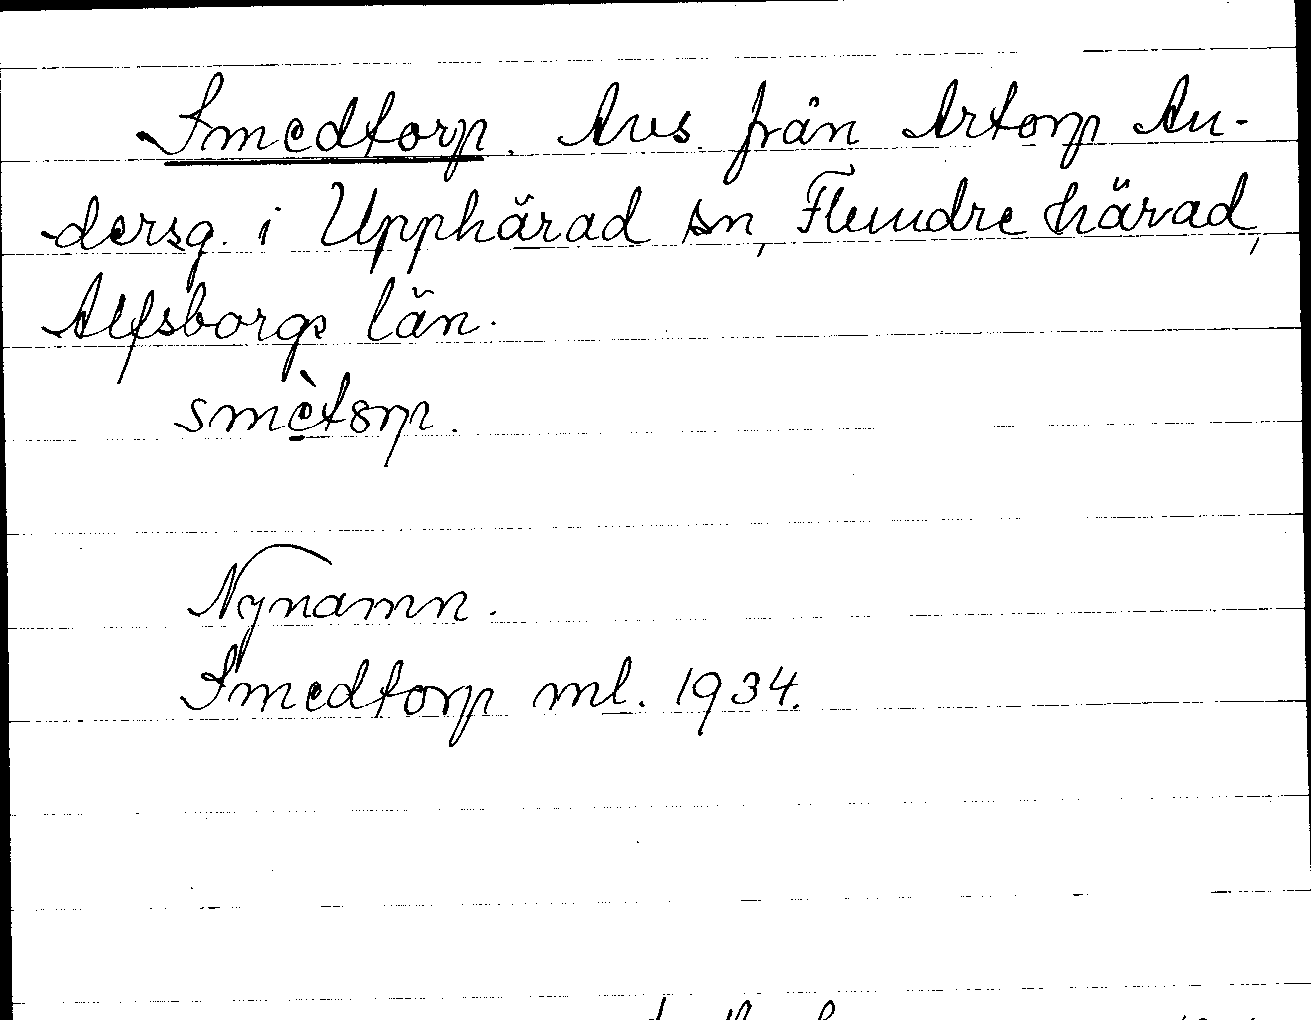 Smedtorp. Avs. från Artorp An-
dersg. i Upphärad sn, Flundre härad,
Älfsborgs län.
smètorp.
Nynamn.
Smedtorp ml. 1934.